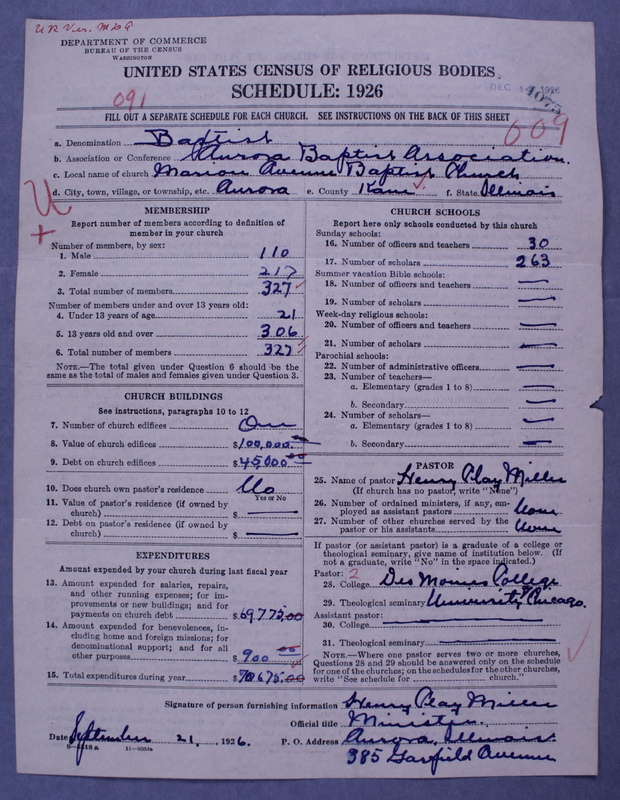 U R Ves. M D G
DEPARTMENT OF COMMERCE
BUREAU OF THE CENSUS
WASHINGTON
UNITED STATES CENSUS OF RELIGIOUS BODIES
SCHEDULE: 1926
DEC 1926
091
FILL OUT A SEPARATE SCHEDULE FOR EACH CHURCH. SEE INSTRUCTIONS ON THE BACK OF THIS SHEET
009
a. Denomination Baptist
b. Association or Conference Aurora Baptist Association.
c. Local name of church Marion Avenue Baptist Church
d. City, town, village, or township, etc. Aurora e. County Kane f. State Illinois
MEMBERSHIP
Report number of members according to definition of
member in your church
Number of members, by sex:
1. Male 110
2. Female 217
3. Total number of members 327
Number of members under and over 13 years old:
4. Under 13 years of age 21
5. 13 years old and over 306
6. Total number of members 327
NOTE.—The total given under Question 6 should be the
same as the total of males and females given under Question 3.
CHURCH BUILDINGS
See instructions, paragraphs 10 to 12
7. Number of church edifices One
8. Value of church edifices $100,000.00
9. Debt on church edifices $45000.00
10. Does church own pastor's residence No
Yes or No
11. Value of pastor's residence (if owned by
church) $ —
12. Debt on pastor's residence (if owned by
church) $ —
EXPENDITURES
Amount expended by your church during last fiscal year
13. Amount expended for salaries, repairs,
and other running expenses; for im-
provements or new buildings; and for
payments on church debt $69775.00
14. Amount expended for benevolences, in-
cluding home and foreign missions; for
denominational support; and for all
other purposes $900.00
15. Total expenditures during year $70675.00
CHURCH SCHOOLS
Report here only schools conducted by this church
Sunday schools:
16. Number of officers and teachers 30
17. Number of scholars 263
Summer vacation Bible schools:
18. Number of officers and teachers —
19. Number of scholars —
Week-day religious schools:
20. Number of officers and teachers —
21. Number of scholars —
Parochial schools:
22. Number of administrative officers —
23. Number of teachers—
a. Elementary (grades 1 to 8) —
b. Secondary —
24. Number of scholars—
a. Elementary (grades 1 to 8) —
b. Secondary —
PASTOR
25. Name of pastor Henry Clay Miller
(If church has no pastor, write "None")
26. Number of ordained ministers, if any, em-
ployed as assistant pastors None
27. Number of other churches served by the
pastor or his assistants None
If pastor (or assistant pastor) is a graduate of a college or
theological seminary, give name of institution below. (If
not a graduate, write "No" in the space indicated.)
Pastor: 2
28. College Des Moines College
29. Theological seminary University of Chicago.
Assistant pastor:
30. College —
31. Theological seminary —
NOTE.—Where one pastor serves two or more churches,
Questions 28 and 29 should be answered only on the schedule
for one of the churches; on the schedules for the other churches,
write "See schedule for church."
Signature of person furnishing information Henry Clay Miller
Official title Minister.
Date September 21, 1926. P. O. Address Aurora, Illinois.
385 Garfield Avenue
11—9664a